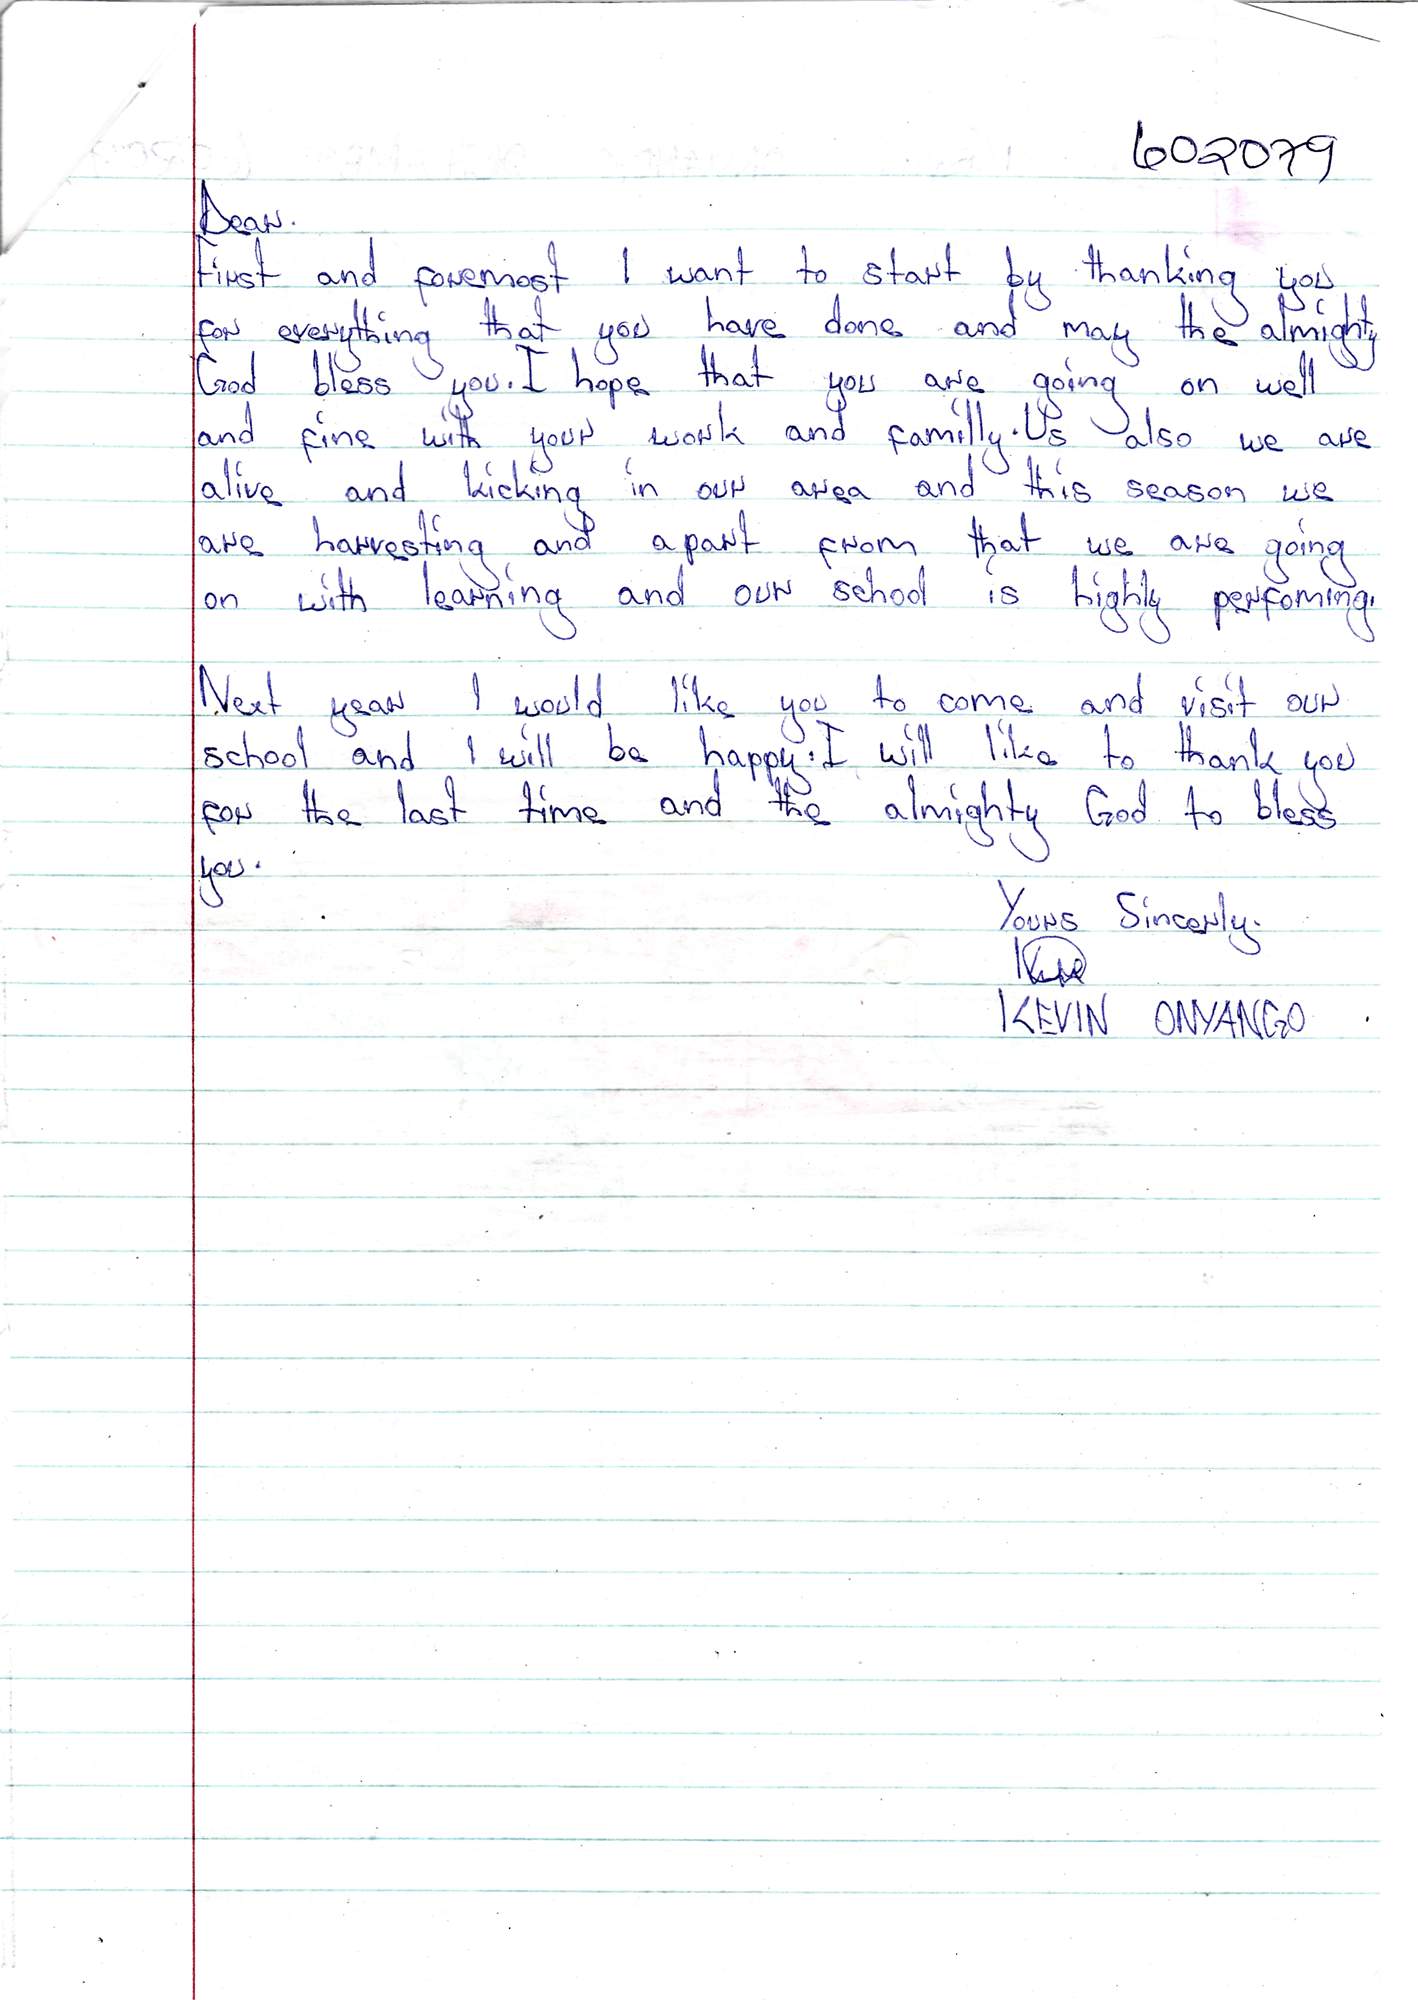 602079
Dear.
First and foremost I want to start by thanking you
for everything that you have done and may the almighty
God bless you. I hope that you are going on well
and fine with your work and familly. Us also we are
alive and kicking in our area and this season we
are harvesting and apart from that we are going
on with learning and our school is highly perfoming.
Next year I would like you to come and visit our
school and I will be happy. I will like to thank you
for the last time and the almighty God to bless
you.
Yours Sincerly.
KEVIN ONYANGO